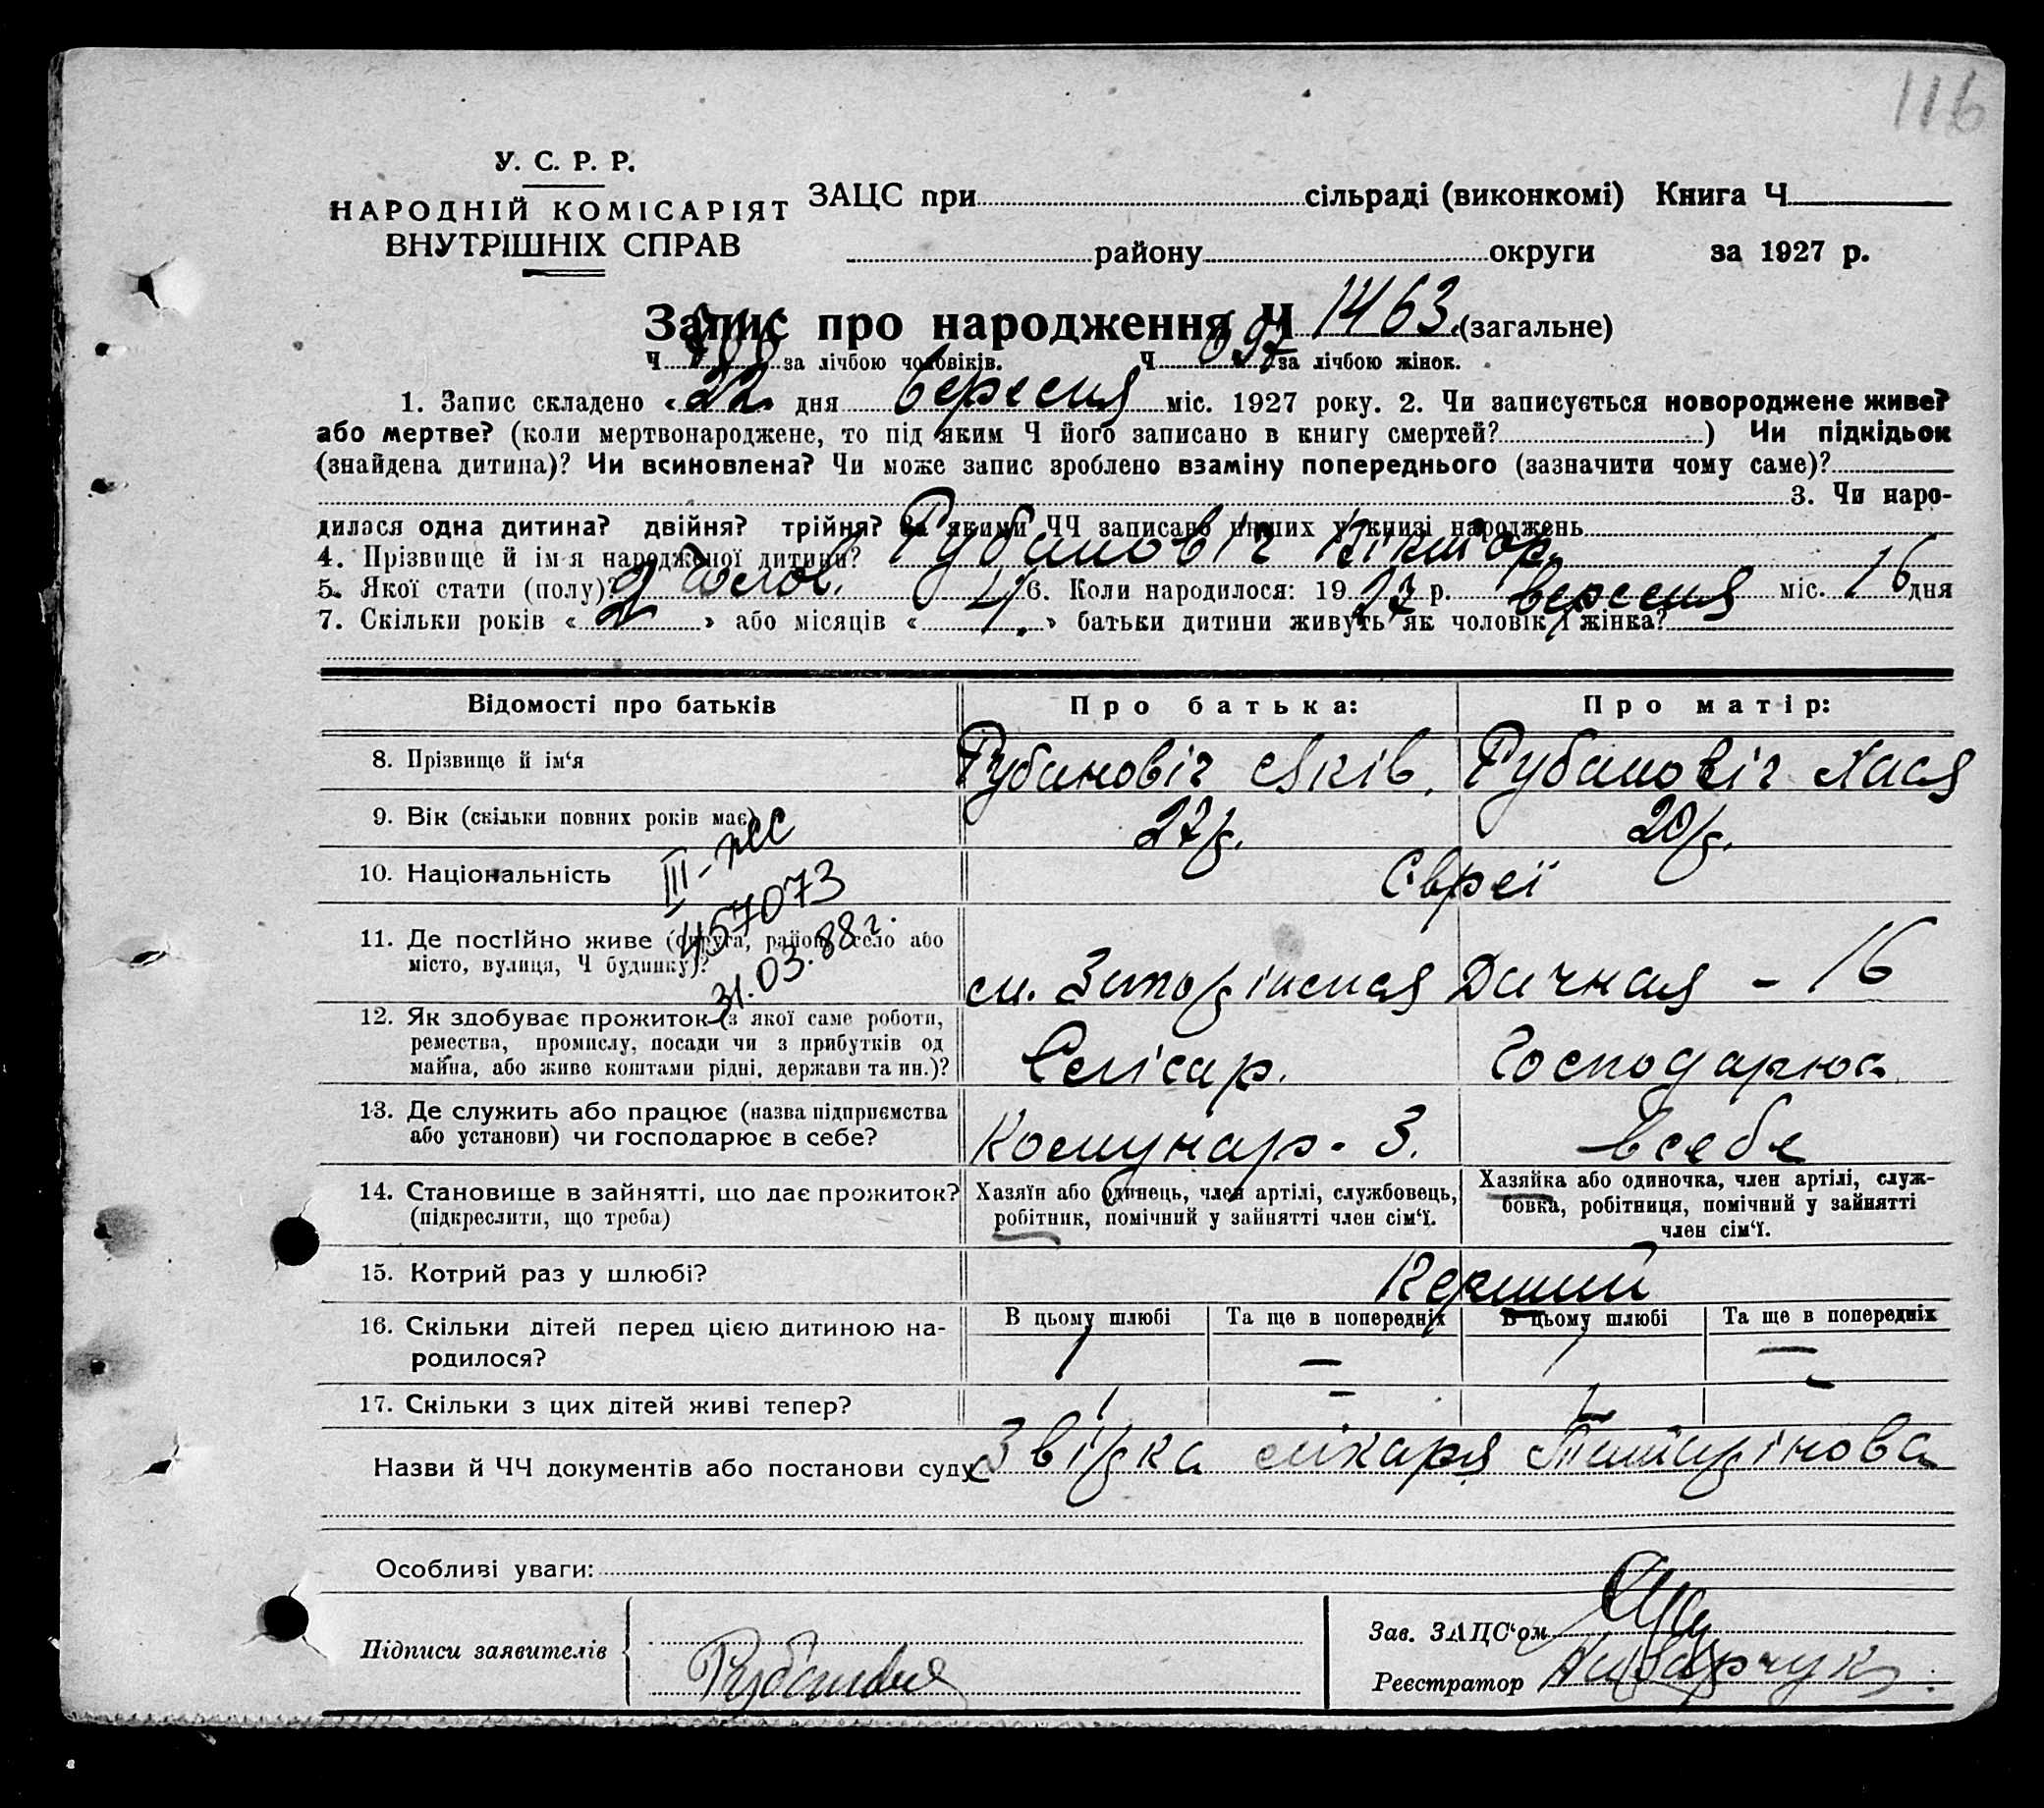 116
У. С. Р. Р.
НАРОДНІЙ КОМІСАРІЯТ
ВНУТРІШНІХ СПРАВ
ЗАЦС при сільраді (виконкомі) Книга Ч
району округи за 1927 р.
Запис про народження Ч 1463 (загальне)
Ч за лічбою чоловіків. Ч 697 за лічбою жінок.
1. Запис складено « 22 » дня вересня міс. 1927 року. 2. Чи записується новороджене живе?
або мертве? (коли мертвонароджене, то під яким Ч його записано в книгу смертей? ) Чи підкідьок
(знайдена дитина)? Чи всиновлена? Чи може запис зроблено взаміну попереднього (зазначити чому саме)?
3. Чи наро-
дилася одна дитина? двійня? трійня? За якими ЧЧ записано инших у книзі народжень
4. Прізвище й ім‘я народженої дитини? Рубановіч Віктор
5. Якої стати (полу)? чолов. 6. Коли народилося: 19 27 р. вересня міс. 16 дня
7. Скільки років « 2 » або місяців « » батьки дитини живуть як чоловік і жінка?
Відомості про батьків Про батька: Про матір:
8. Прізвище й ім‘я Рубановіч Яків. Рубановіч Хася
9. Вік (скільки повних років має) 27 р. 20 р.
10. Національність Євреї
III-
457073
31.03.88 г.
11. Де постійно живе (округа, район, село або
місто, вулиця, Ч будинку)? Дачная - 16
12. Як здобуває прожиток (з якої саме роботи,
ремества, промислу, посади чи з прибутків од
майна, або живе коштами рідні, держави та ин.)? Слісар. Господарює
13. Де служить або працює (назва підприємства
або установи) чи господарює в себе? Комунар. З. в себе
14. Становище в зайнятті, що дає прожиток?
(підкреслити, що треба)
Хазяїн або одинець, член артілі, службовець,
робітник, помічний у зайнятті член сім‘ї.
Хазяйка або одиночка, член артілі, служ-
бовка, робітниця, помічний у зайнятті
член сім‘ї.
15. Котрий раз у шлюбі? Перший
16. Скільки дітей перед цією дитиною на-
родилося?
В цьому шлюбі Та ще в попередніх В цьому шлюбі Та ще в попередніх
1 — 1 —
17. Скільки з цих дітей живі тепер? 1 - 1 -
Назви й ЧЧ документів або постанови суду Звідка лікаря
Особливі уваги:
Підписи заявителів
Зав. ЗАЦС‘ом
Реєстратор